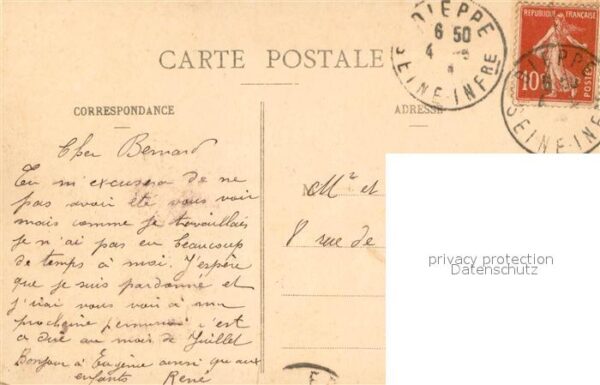 DIEPPE
6 50
4 -8
SEINE-INFRE
REPUBLIQUE FRANÇAISE
10
POSTES
DIEPPE
6 50
SEINE-INF
CARTE POSTALE
CORRESPONDANCE
ADRESSE
Cher Bernard
Tu m'excusera de ne
pas avoir été vous voir
mais comme je travaillais
je n'ai pas eu beaucoup
de temps à moi. J'espère
que je suis pardonné et
j'irai vous voir à ma
prochaine c'est
a dire au mois de Juillet
Bonjour à Eugène ainsi qu'aux
enfants René
Mr et
8 rue de
privacy protection
Datenschutz